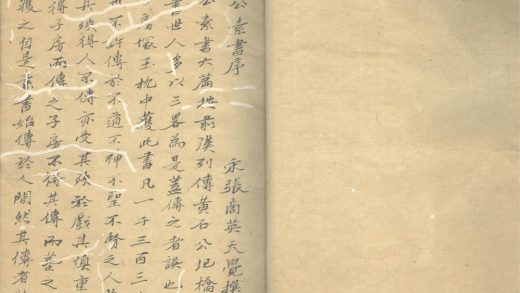 公素書序
宋張商英天覺撰
公素書六篇按前漢列傳黃石公圯橋
書世人多以三畧為是蓋傳之者誤也
房塚玉枕中護此書凡一千三百三
不許傳於不道不神不聖不賢之人
其殃得人不傳亦受其殃於戲其慎重
得子房而傳之子房不得其傳而葬之
獲之自是素書始傳於人間然其傳者